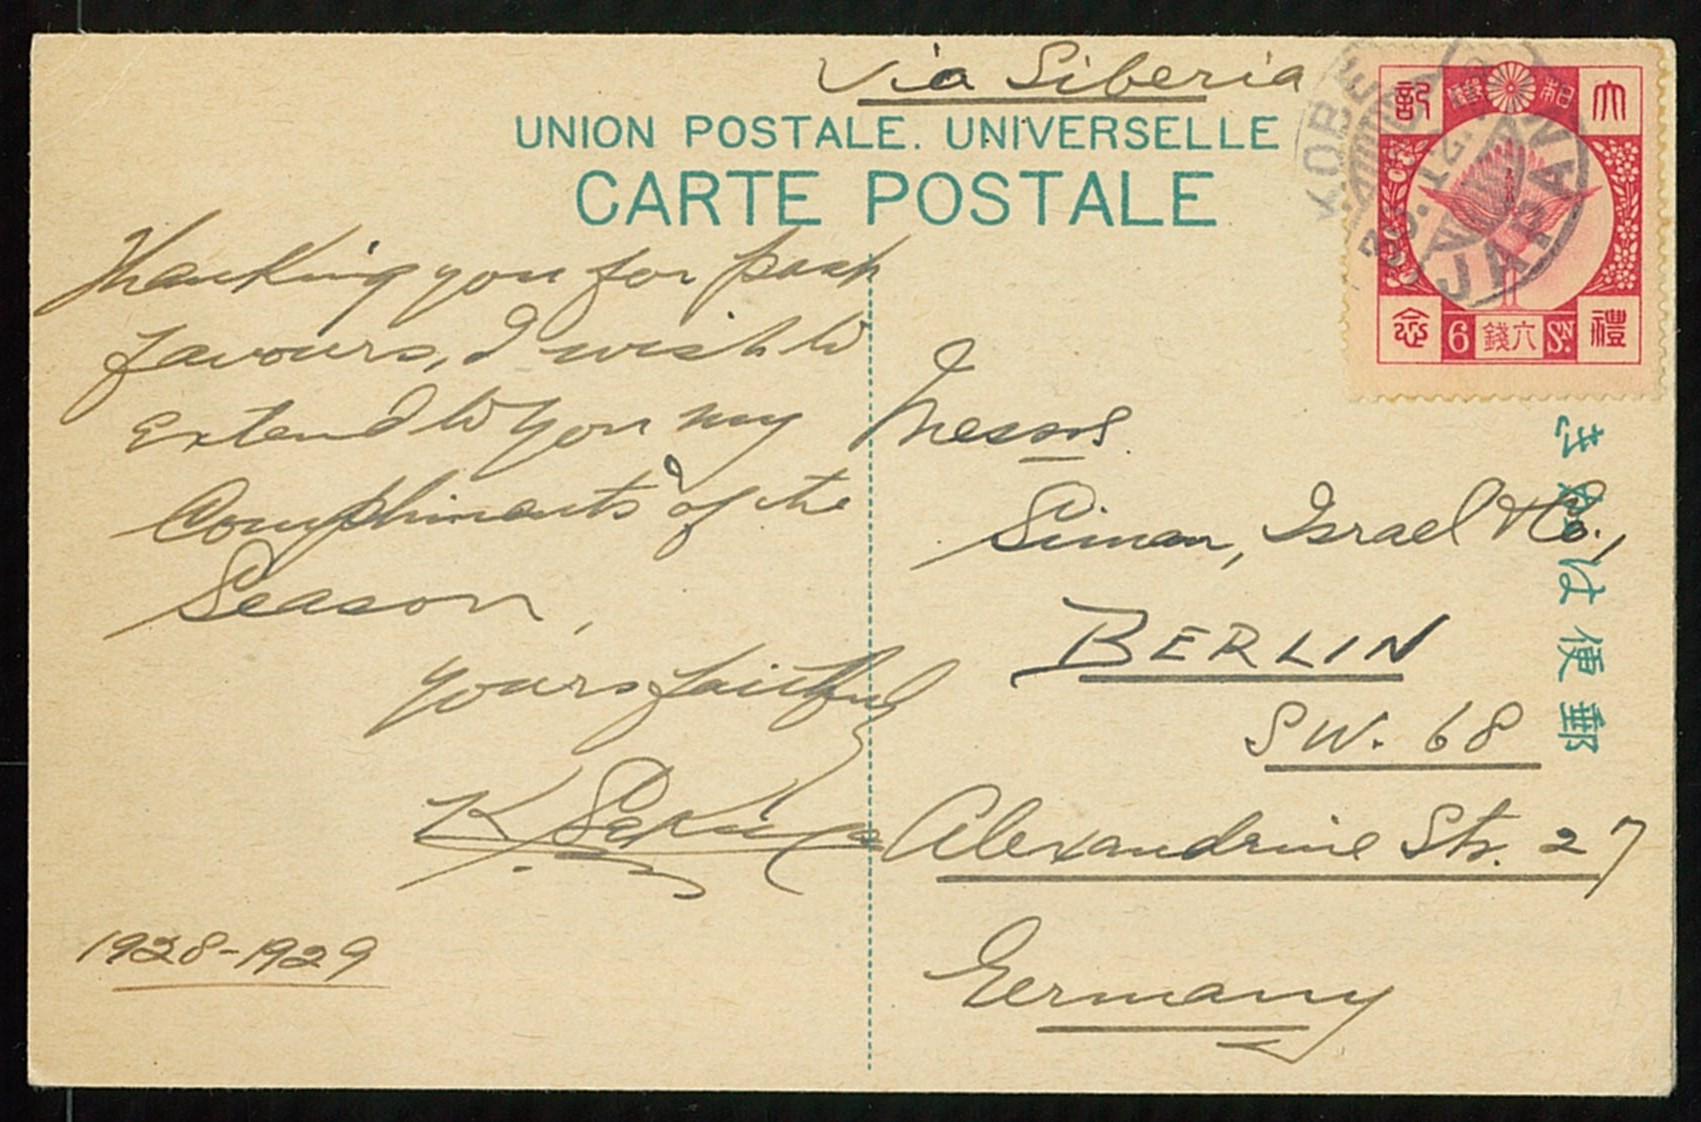 Via Siberia
UNION POSTALE. UNIVERSELLE
CARTE POSTALE
KOBE
JAPAN
大
昭和
記
禮
念
6 錢六 SN.
きがは便郵
Thanking you for past
favours, I wish to
extend to you my
Compliments of the
Season,
yours faithfully
K.
1928-1929
Messrs.
Siman, Israel & Co.,
BERLIN
SW. 68
Alexandrine Str. 27
Germany